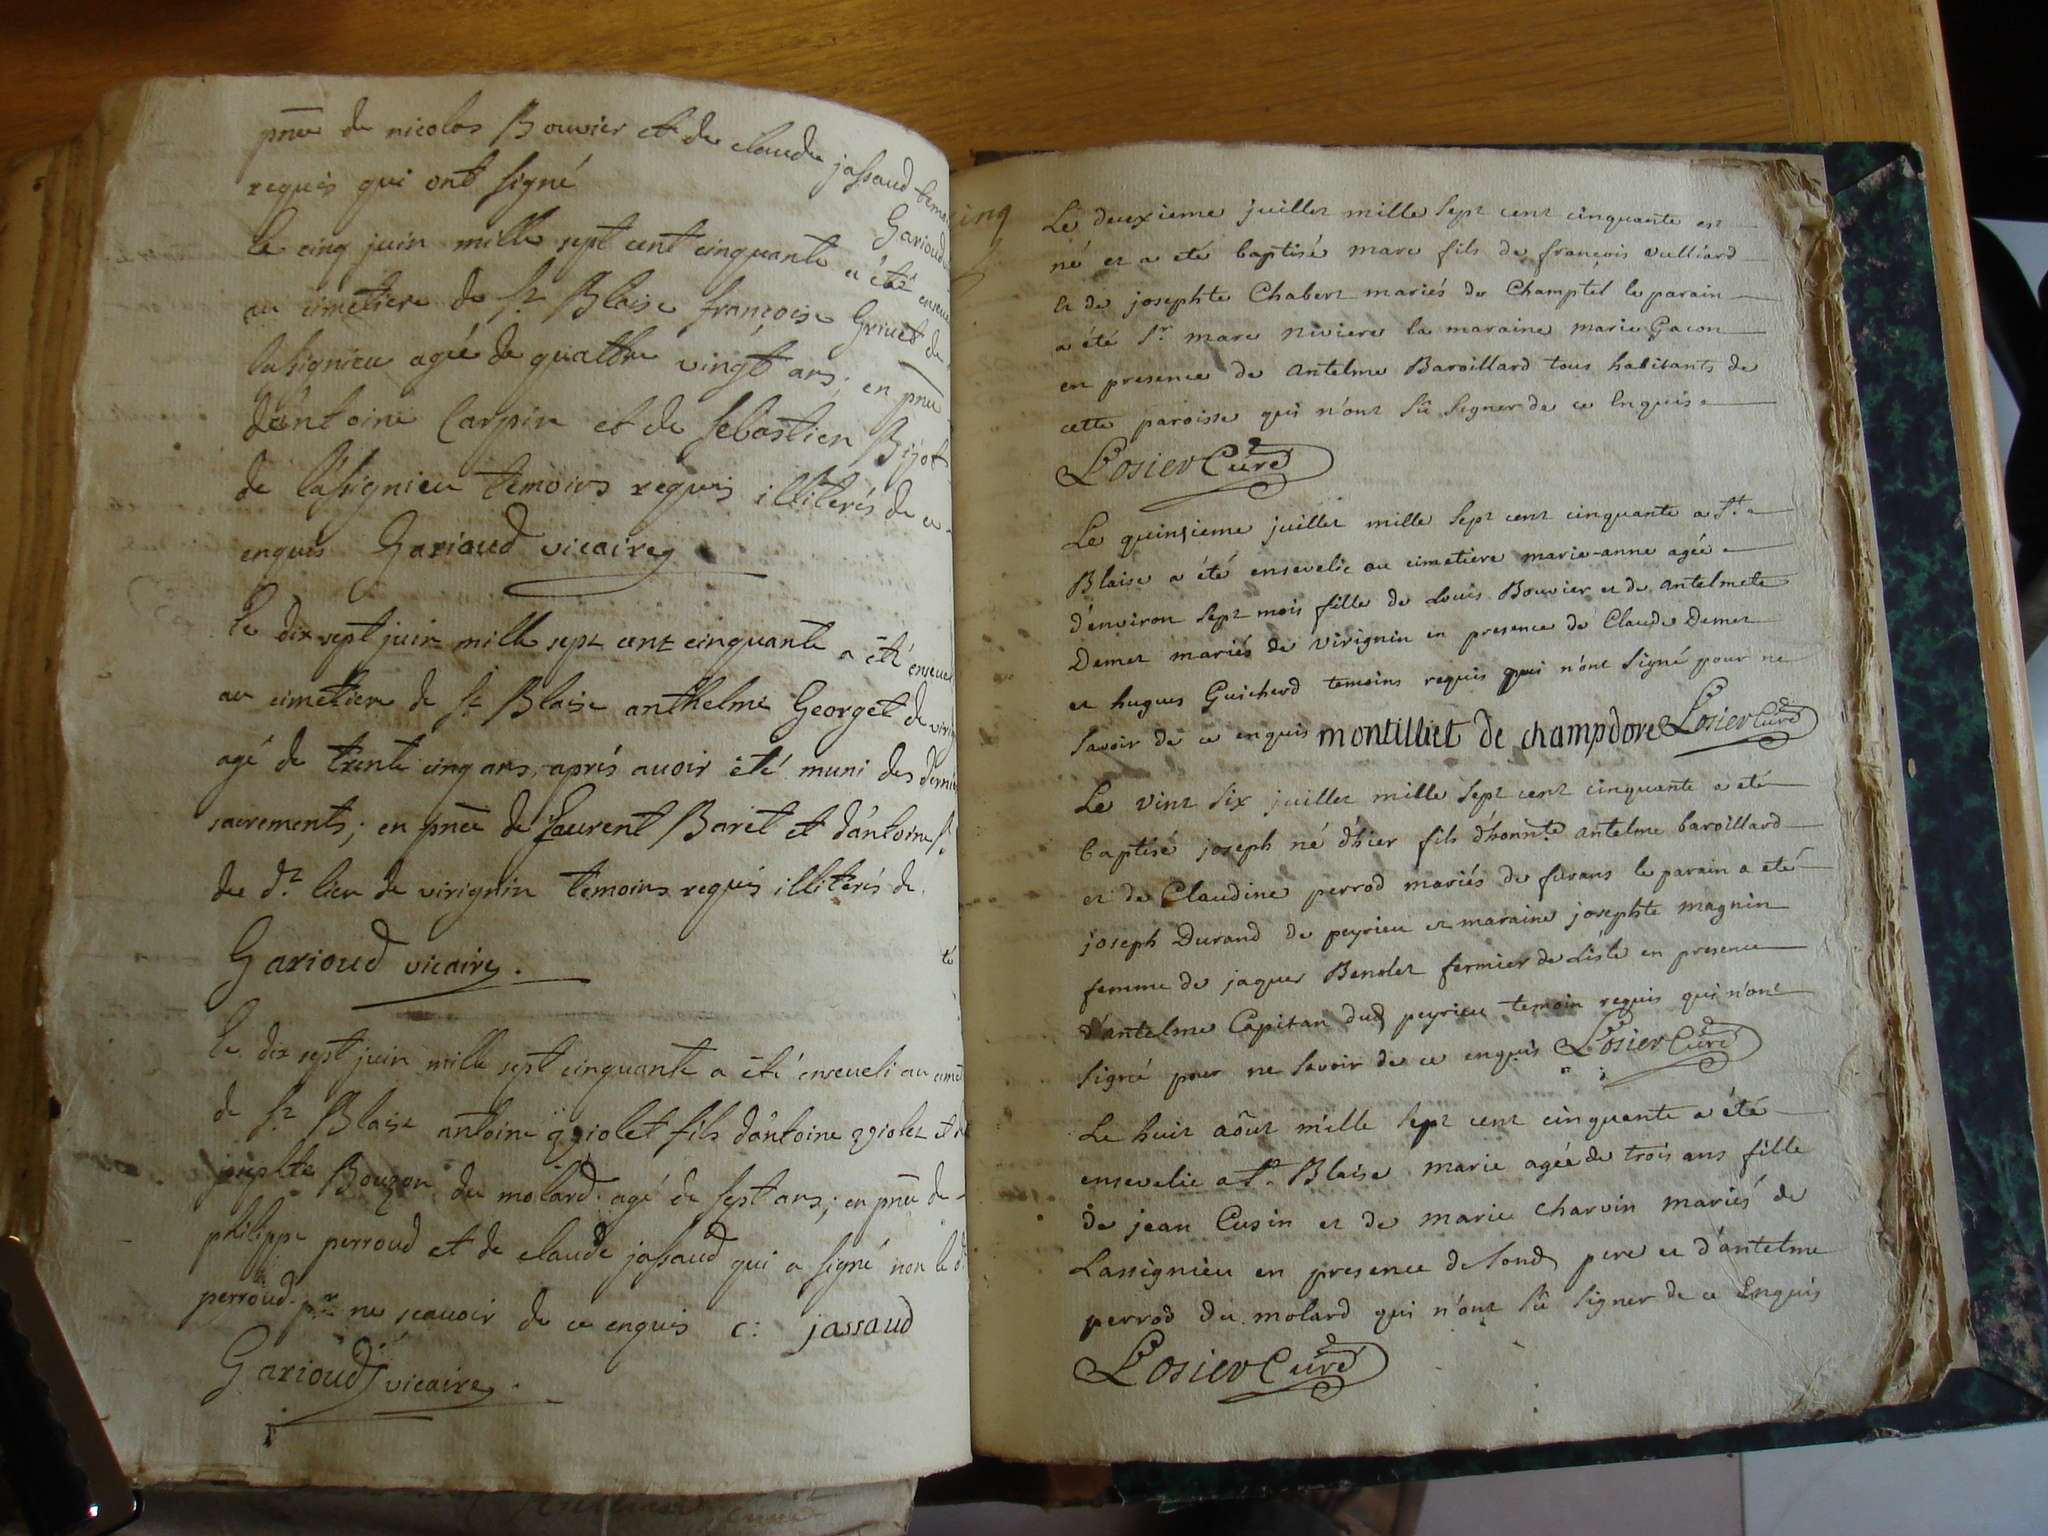 pñce de nicolas Bouvier et de claude jassaud
requis qui ont signé
Garioud
le cinq juin mille sept cent cinquante a été
au cimetiere de st Blaise françoise Grivet de
lassignieu agée de quattre vingt ans; en pñce
d'antoine Carpin et de sebastien Bijot
de lassignieu temoins requis illiterés de ce
enquis Garioud vicaire
le dix sept juin mille sept cent cinquante a été
au cimetiere de st Blaise anthelme Georget de
agé de trente cinq ans, aprés avoir été muni des
sacrements; en pñce de Laurent Baret et d'antoine
du dt lieu de virignin temoins requis illiterés de
Garioud vicaire.
le dix sept juin mille sept cinquante a été enseveli au
de st Blaise antoine fils d'antoine et
josephte Bouzon du molard agé de sept ans; en pñce de
philippe perroud et de claude jassaud qui a signé non le
perroud pr ne scavoir de ce enquis c: jassaud
Garioud vicaire.
Le deuxieme juillet mille sept cent cinquante est
né et a eté baptisé marc fils de françois vulliard
et de josephte Chabert mariés de Champtel le parain
a été sr. marc niviere la maraine marie Gacon
en presence de antelme Baroillard tous habitants de
cette paroisse qui n'ont sû signer de ce Enquis
Losier Curé
Le quinsieme juillet mille sept cent cinquante a st.
Blaise a été ensevelie au cimetiere marie-anne agée
d'environ sept mois fille de Louis Bouvier et de antelmete
Demet mariés de virignin en presence de Claude Demet
et hugues Guicherd temoins requis qui n'ont signé pour ne
savoir de ce enquis montilliet de champdore Losier Curé
Le vint six juillet mille sept cent cinquante a eté
baptisé joseph né d'hier fils d'honnte antelme baroillard
et de Claudine perrod mariés de furans le parain a eté
joseph Durand de peyrieu et maraine josephte magnin
femme de jaques Benolet fermier de Liste en presence
d'antelme Capitan dud peyrieu temoin requis qui n'ont
signé pour ne savoir de ce enquis Losier Curé
Le huit aôut mille sept cent cinquante a été
ensevelie a st. Blaise marie agée de trois ans fille
de jean Cusin et de marie charvin mariés de
Lassignieu en presence de pere et d'antelme
perrod du molard qui n'ont sû signer de ce Enquis
Losier Curé